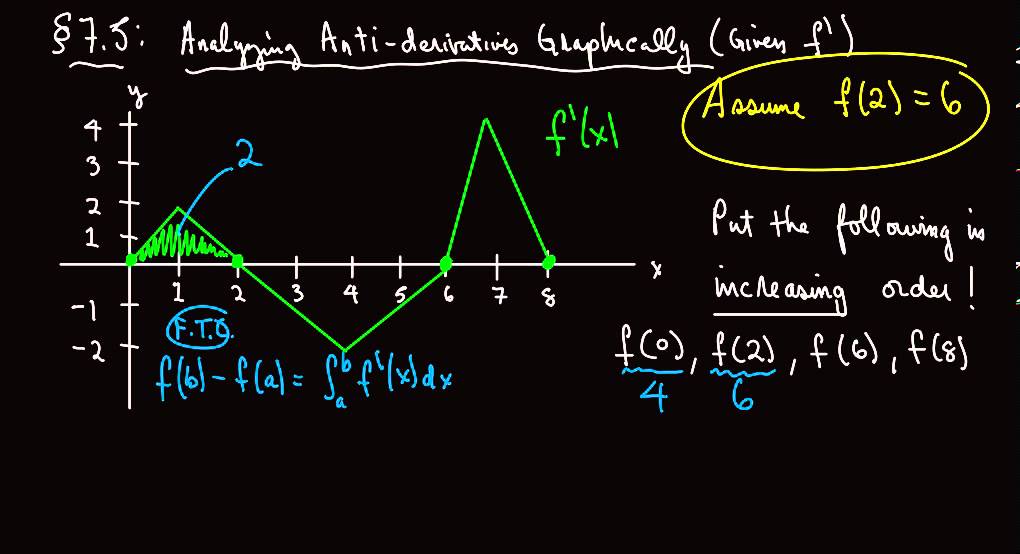 § 7.5: Analyzing Anti-derivatives Graphically (Given f')
Assume f(2) = 6
y
4
3
2
1
-1
-2
2
f'(x)
1 2 3 4 5 6 7 8 x
F.T.C.
f(b) - f(a) = ∫_a^b f'(x) dx
Put the following in
increasing order!
f(0), f(2), f(6), f(8)
4 6